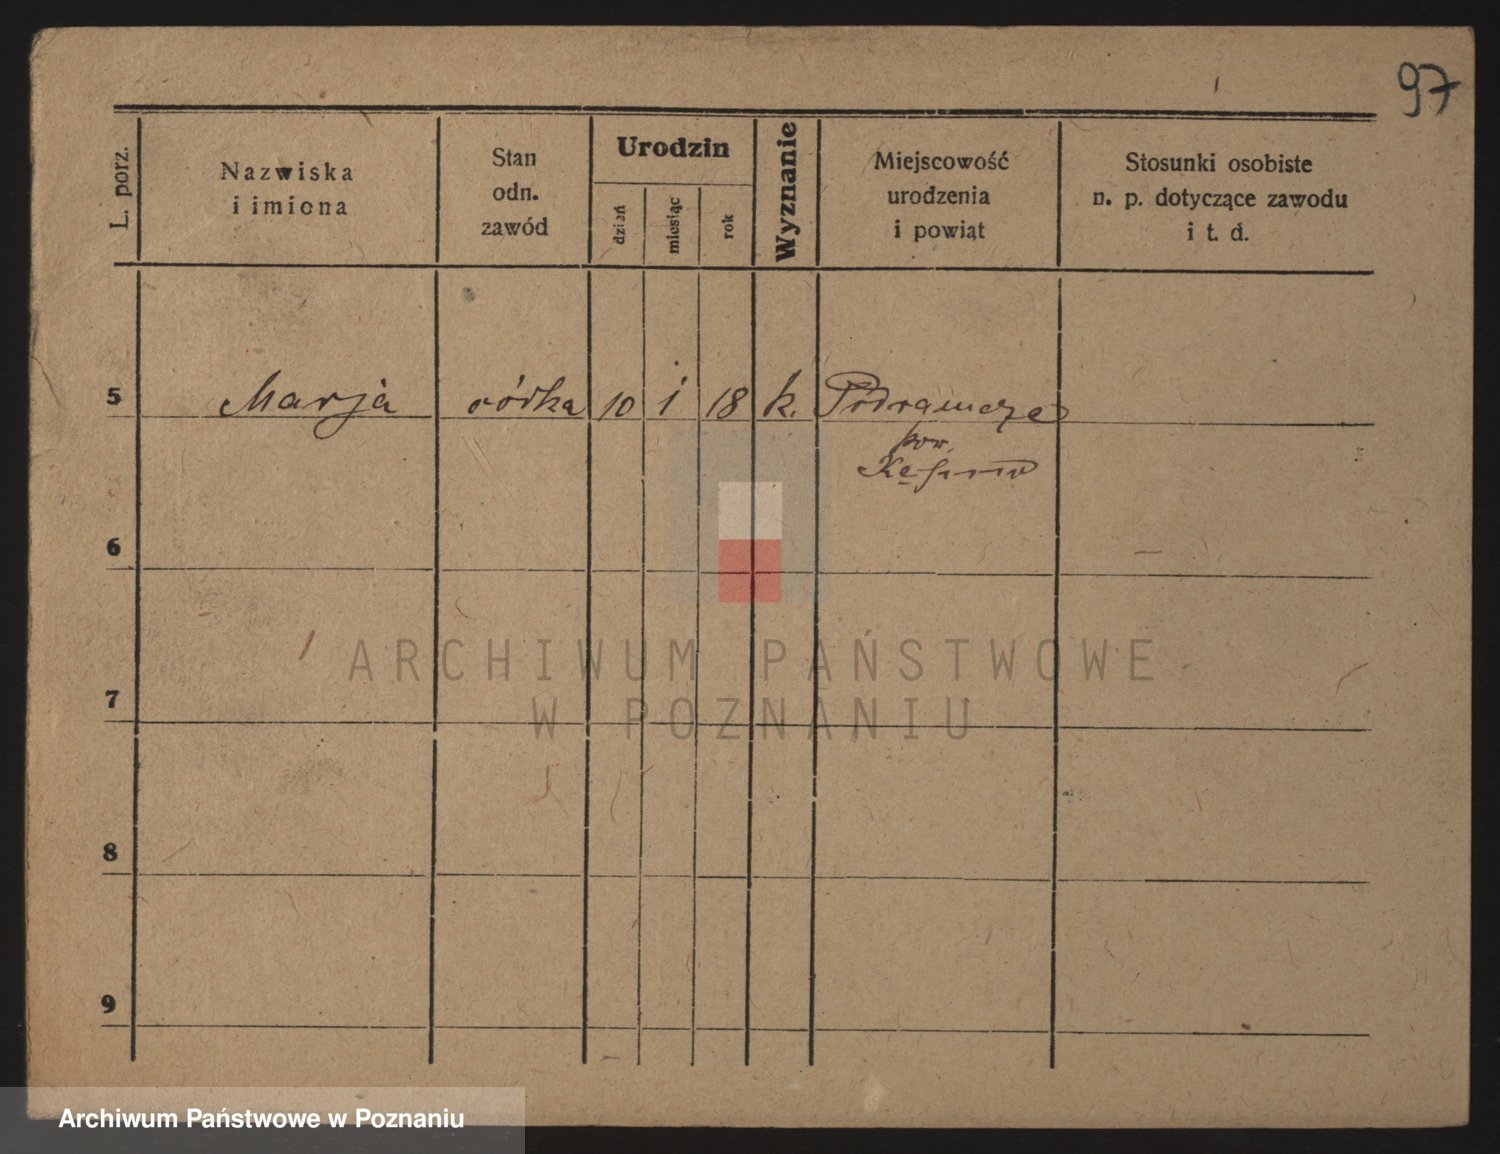 97
L. porz.
Nazwiska
i imiona
Stan
odn.
zawód
Urodzin
dzień
miesiąc
rok
Wyznanie
Miejscowość
urodzenia
i powiat
Stosunki osobiste
n. p. dotyczące zawodu
i t. d.
5 Marja córka 10 i 18 k. Podzamcze
pow.
6
7
8
9
ARCHIWUM PAŃSTWOWE
W POZNANIU
Archiwum Państwowe w Poznaniu